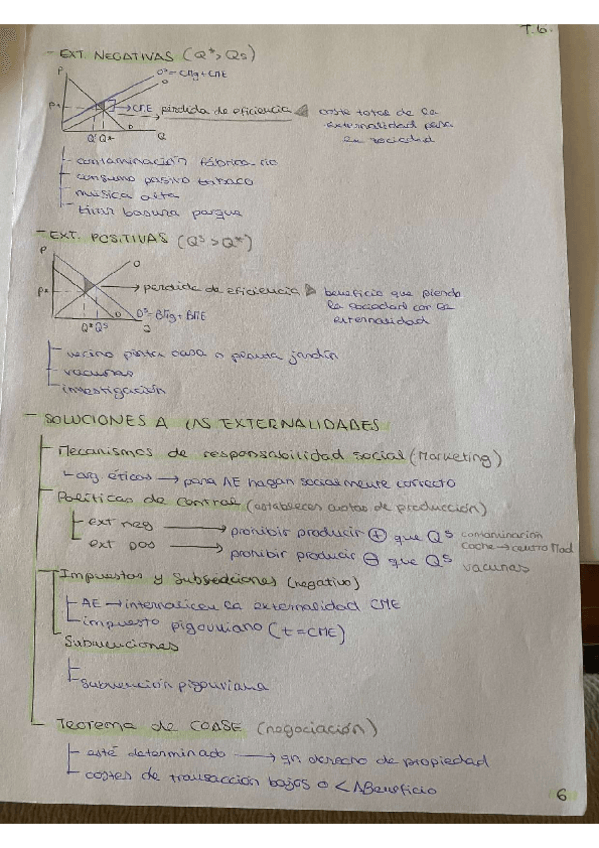 T.6.
- EXT. NEGATIVAS (Q* > Qs)
P
Oˢ = CMg + CME
O
P*
→ CME pérdida de eficiencia → coste total de la
externalidad para
la sociedad
Qˢ Q* D Q
- contaminación fábrica-río
- consumo pasivo tabaco
- música alta
- tirar basura parque
- EXT. POSITIVAS (Qˢ > Q*)
P
O
P*
→ pérdida de eficiencia → beneficio que pierde
la sociedad con la
externalidad
Q* Qˢ D Dˢ = BMg + BME
Q
- vecino pinta casa o planta jardín
- vacunas
- investigación
- SOLUCIONES A LAS EXTERNALIDADES
- Mecanismos de responsabilidad social (Marketing)
↳ arg éticos → para AE hagan socialmente correcto
- Políticas de control (establecer cuotas de producción)
- ext neg → prohibir producir ⊕ que Qˢ contaminación
coche → centro Mad
- ext pos → prohibir producir ⊖ que Qˢ vacunas
- Impuestos y Subvenciones (negativo)
- AE → internalicen la externalidad CME
- impuesto pigouviano (t = CME)
Subvenciones
- subvención pigouviana
- Teorema de COASE (negociación)
- esté determinado → un derecho de propiedad
- costes de transacción bajos o < ΔBeneficio
6